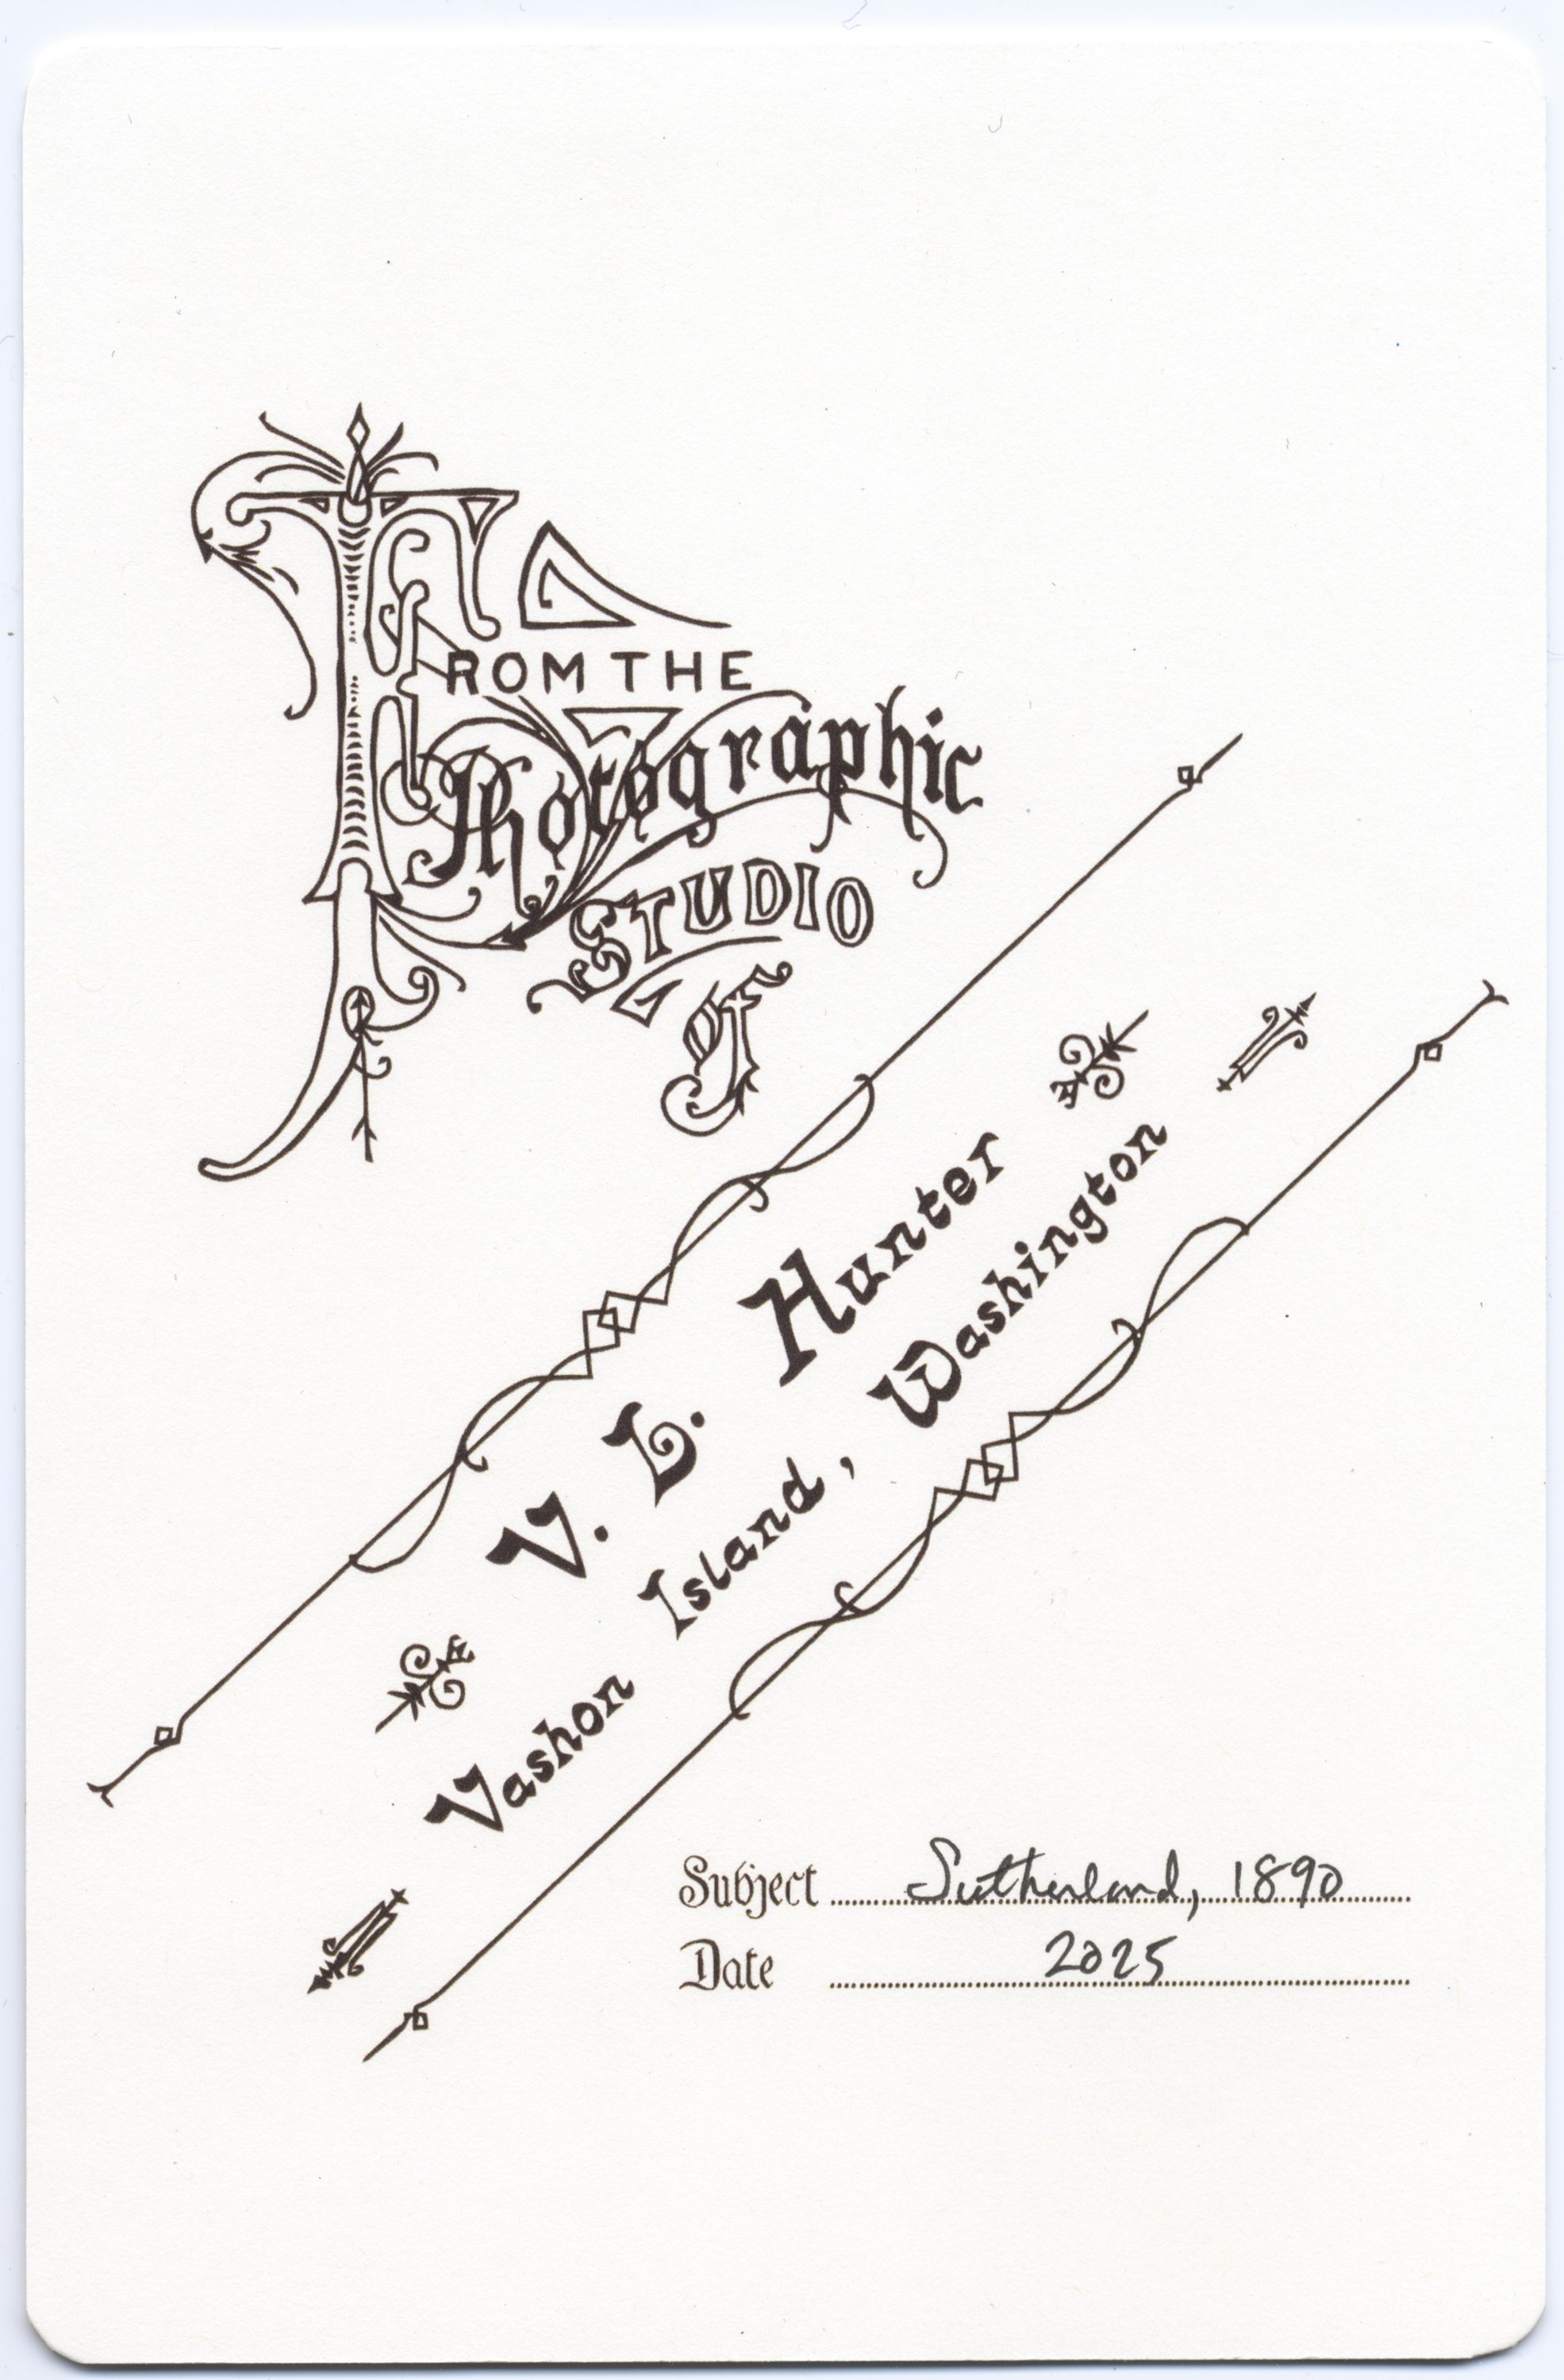 FROM THE
Photographic
STUDIO
of
V. L. Hunter
Vashon Island, Washington
Subject Sutherland, 1890
Date 2025